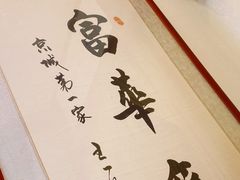 富華
京城第一家